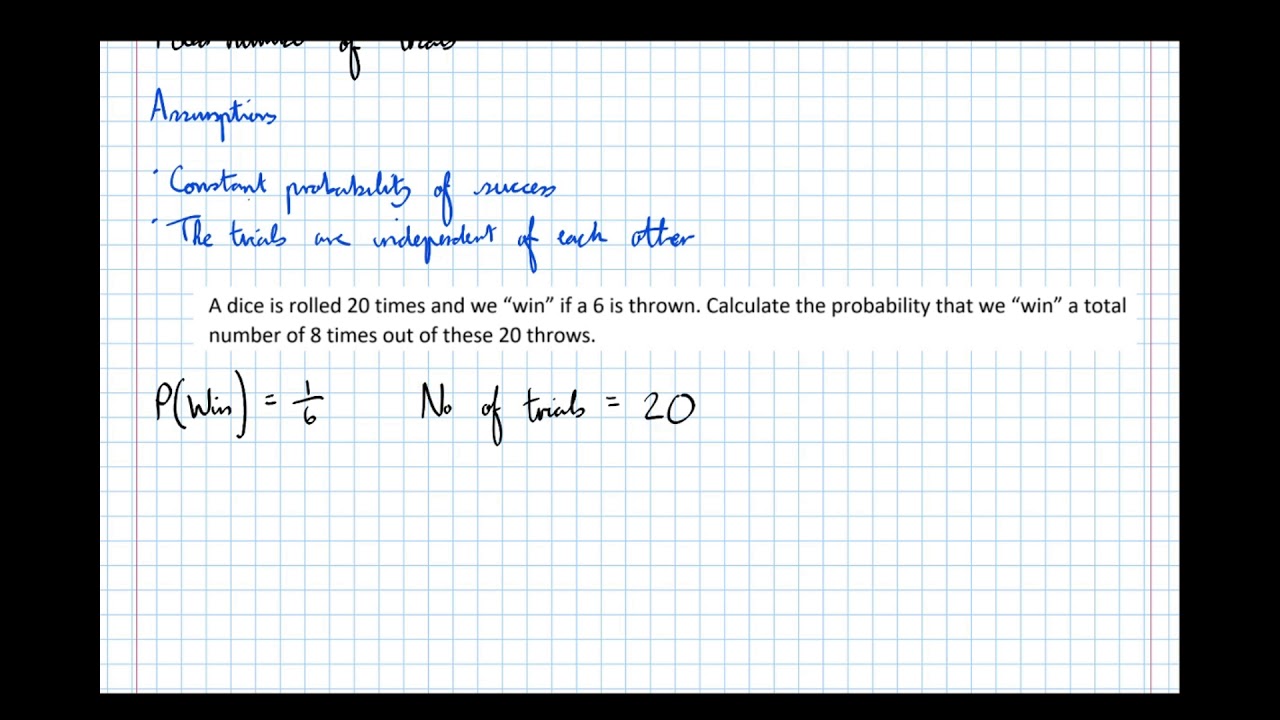 of trials
Assumptions
· Constant probability of success
· The trials are independent of each other
A dice is rolled 20 times and we “win” if a 6 is thrown. Calculate the probability that we “win” a total
number of 8 times out of these 20 throws.
P(Win) = 1/6 No of trials = 20